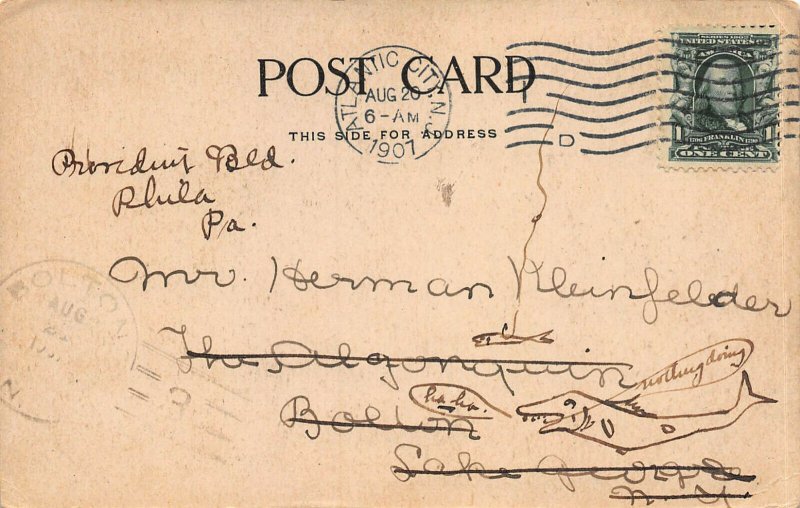 POST CARD
THIS SIDE FOR ADDRESS
ATLANTIC CITY, N.J.
AUG 20
6-AM
1907
D
SERIES 1902
UNITED STATES OF AMERICA
1 FRANKLIN 1
ONE CENT
Provident Bld.
Phila
Pa.
BOLTON
AUG
N
Mr. Herman Kleinfelder
The Algonquin
nothing doing
ha-ha.
Bolton
Lake George
N.Y.